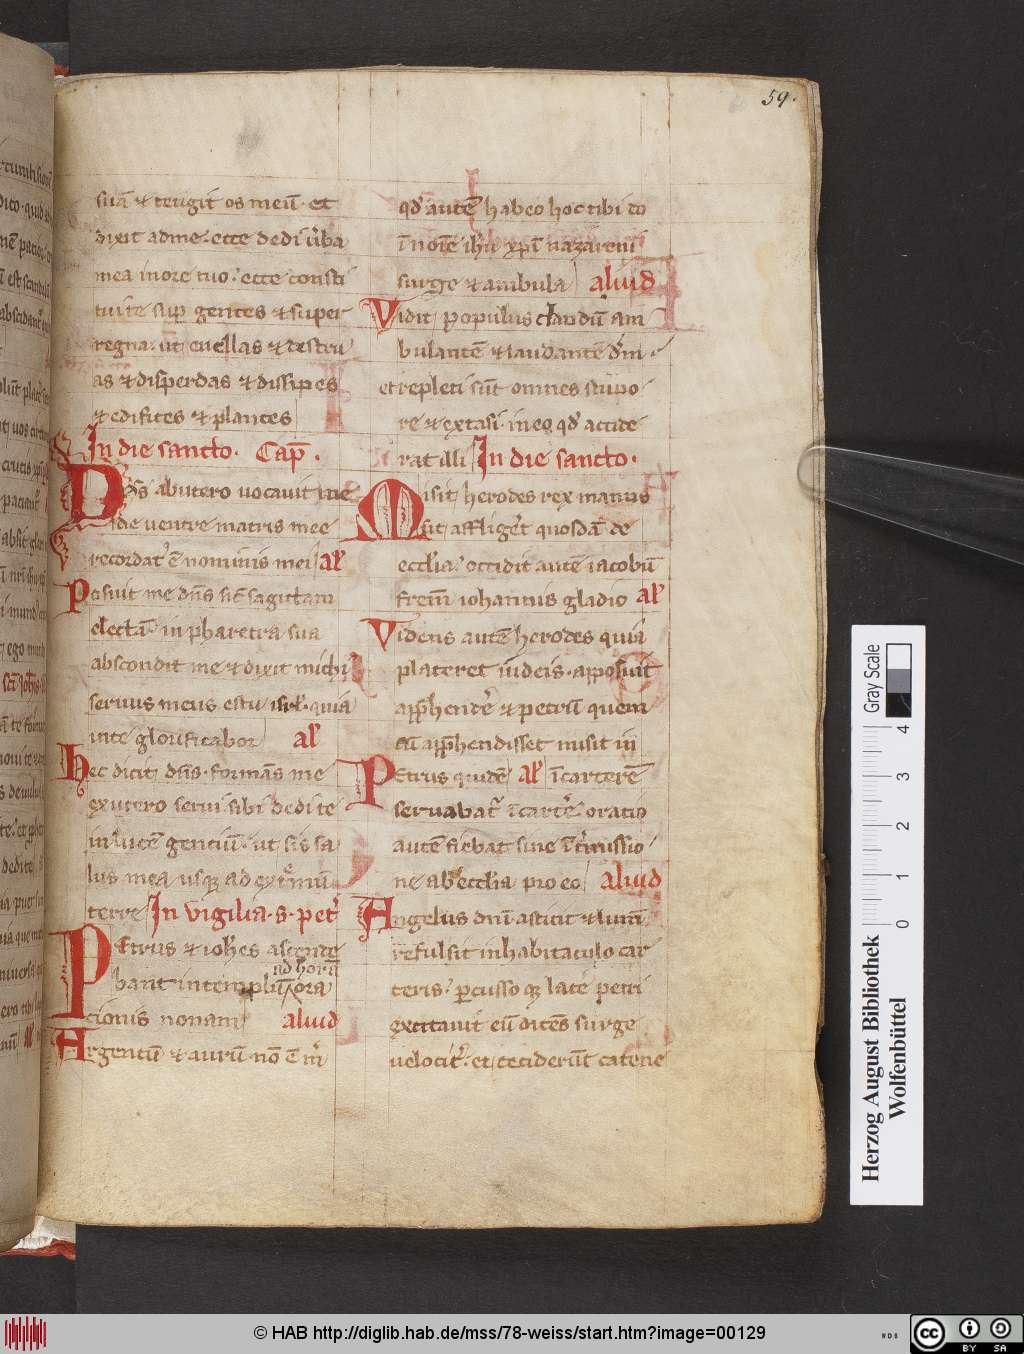 59.
suā ⁊ tetigit os meū. et
dixit ad me. ecce dedi ūba
mea in ore tuo. ecce consti
tui te sup gentes ⁊ super
regna. ut euellas ⁊ destru
as ⁊ disperdas ⁊ dissipes
⁊ edifices ⁊ plantes
In die sancto. Cap̄.
Dn̄s ab utero uocauit me
de uentre matris mee
recordat᾽ ē nominis mei al᾽
Posuit me dn̄s sic̄ sagittam
electā. in pharetra sua
abscondit me ⁊ dixit michi
seruus meus es tu isrl̄. quia
in te glorificabor al᾽
Hec dicit dn̄s. formans me
ex utero serui sibi dedi te
in lucē gentiū. ut sis sa
lus mea usq; ad extremū
terre In vigilia. s. pet᾽
Petrus ⁊ ioh̄es ascende
ad horā
bant in templū ora
cionis nonam aliud
Argentū ⁊ aurū nō ē m᾽
qd̄ autē habeo hoc tibi do
ī noīe ih̄u xp̄i nazareni
surge ⁊ ambula aliud
Vidit populus claudū am
bulantē ⁊ laudantē dm̄.
et repleti sūt omnes stupo
re ⁊ extasi. in eo qd̄ accide
rat illi In die sancto.
Misit herodes rex manus
ut affliget᾽ quosdā de
ecclīa. occidit autē iacobū
frem̄ iohannis gladio al᾽
Videns autē herodes quia
placeret iudeis. apposuit
app̄hende᾽ ⁊ petrū quem
cū app̄hendisset misit in
Petrus quidē al᾽ ī carcerē
seruabat᾽ ī carcē. oratio
autē fiebat sine īt᾽missio
ne ab ecclīa pro eo aliud
Angelus dn̄i astitit ⁊ lum̄
refulsit in habitaculo car
ceris. pcusso q; late᾽ petri
excitauit eū dicēs surge
uelocit᾽. et ceciderūt catene
Gray Scale
0 1 2 3 4
Herzog August Bibliothek
Wolfenbüttel
© HAB http://diglib.hab.de/mss/78-weiss/start.htm?image=00129
cc BY SA